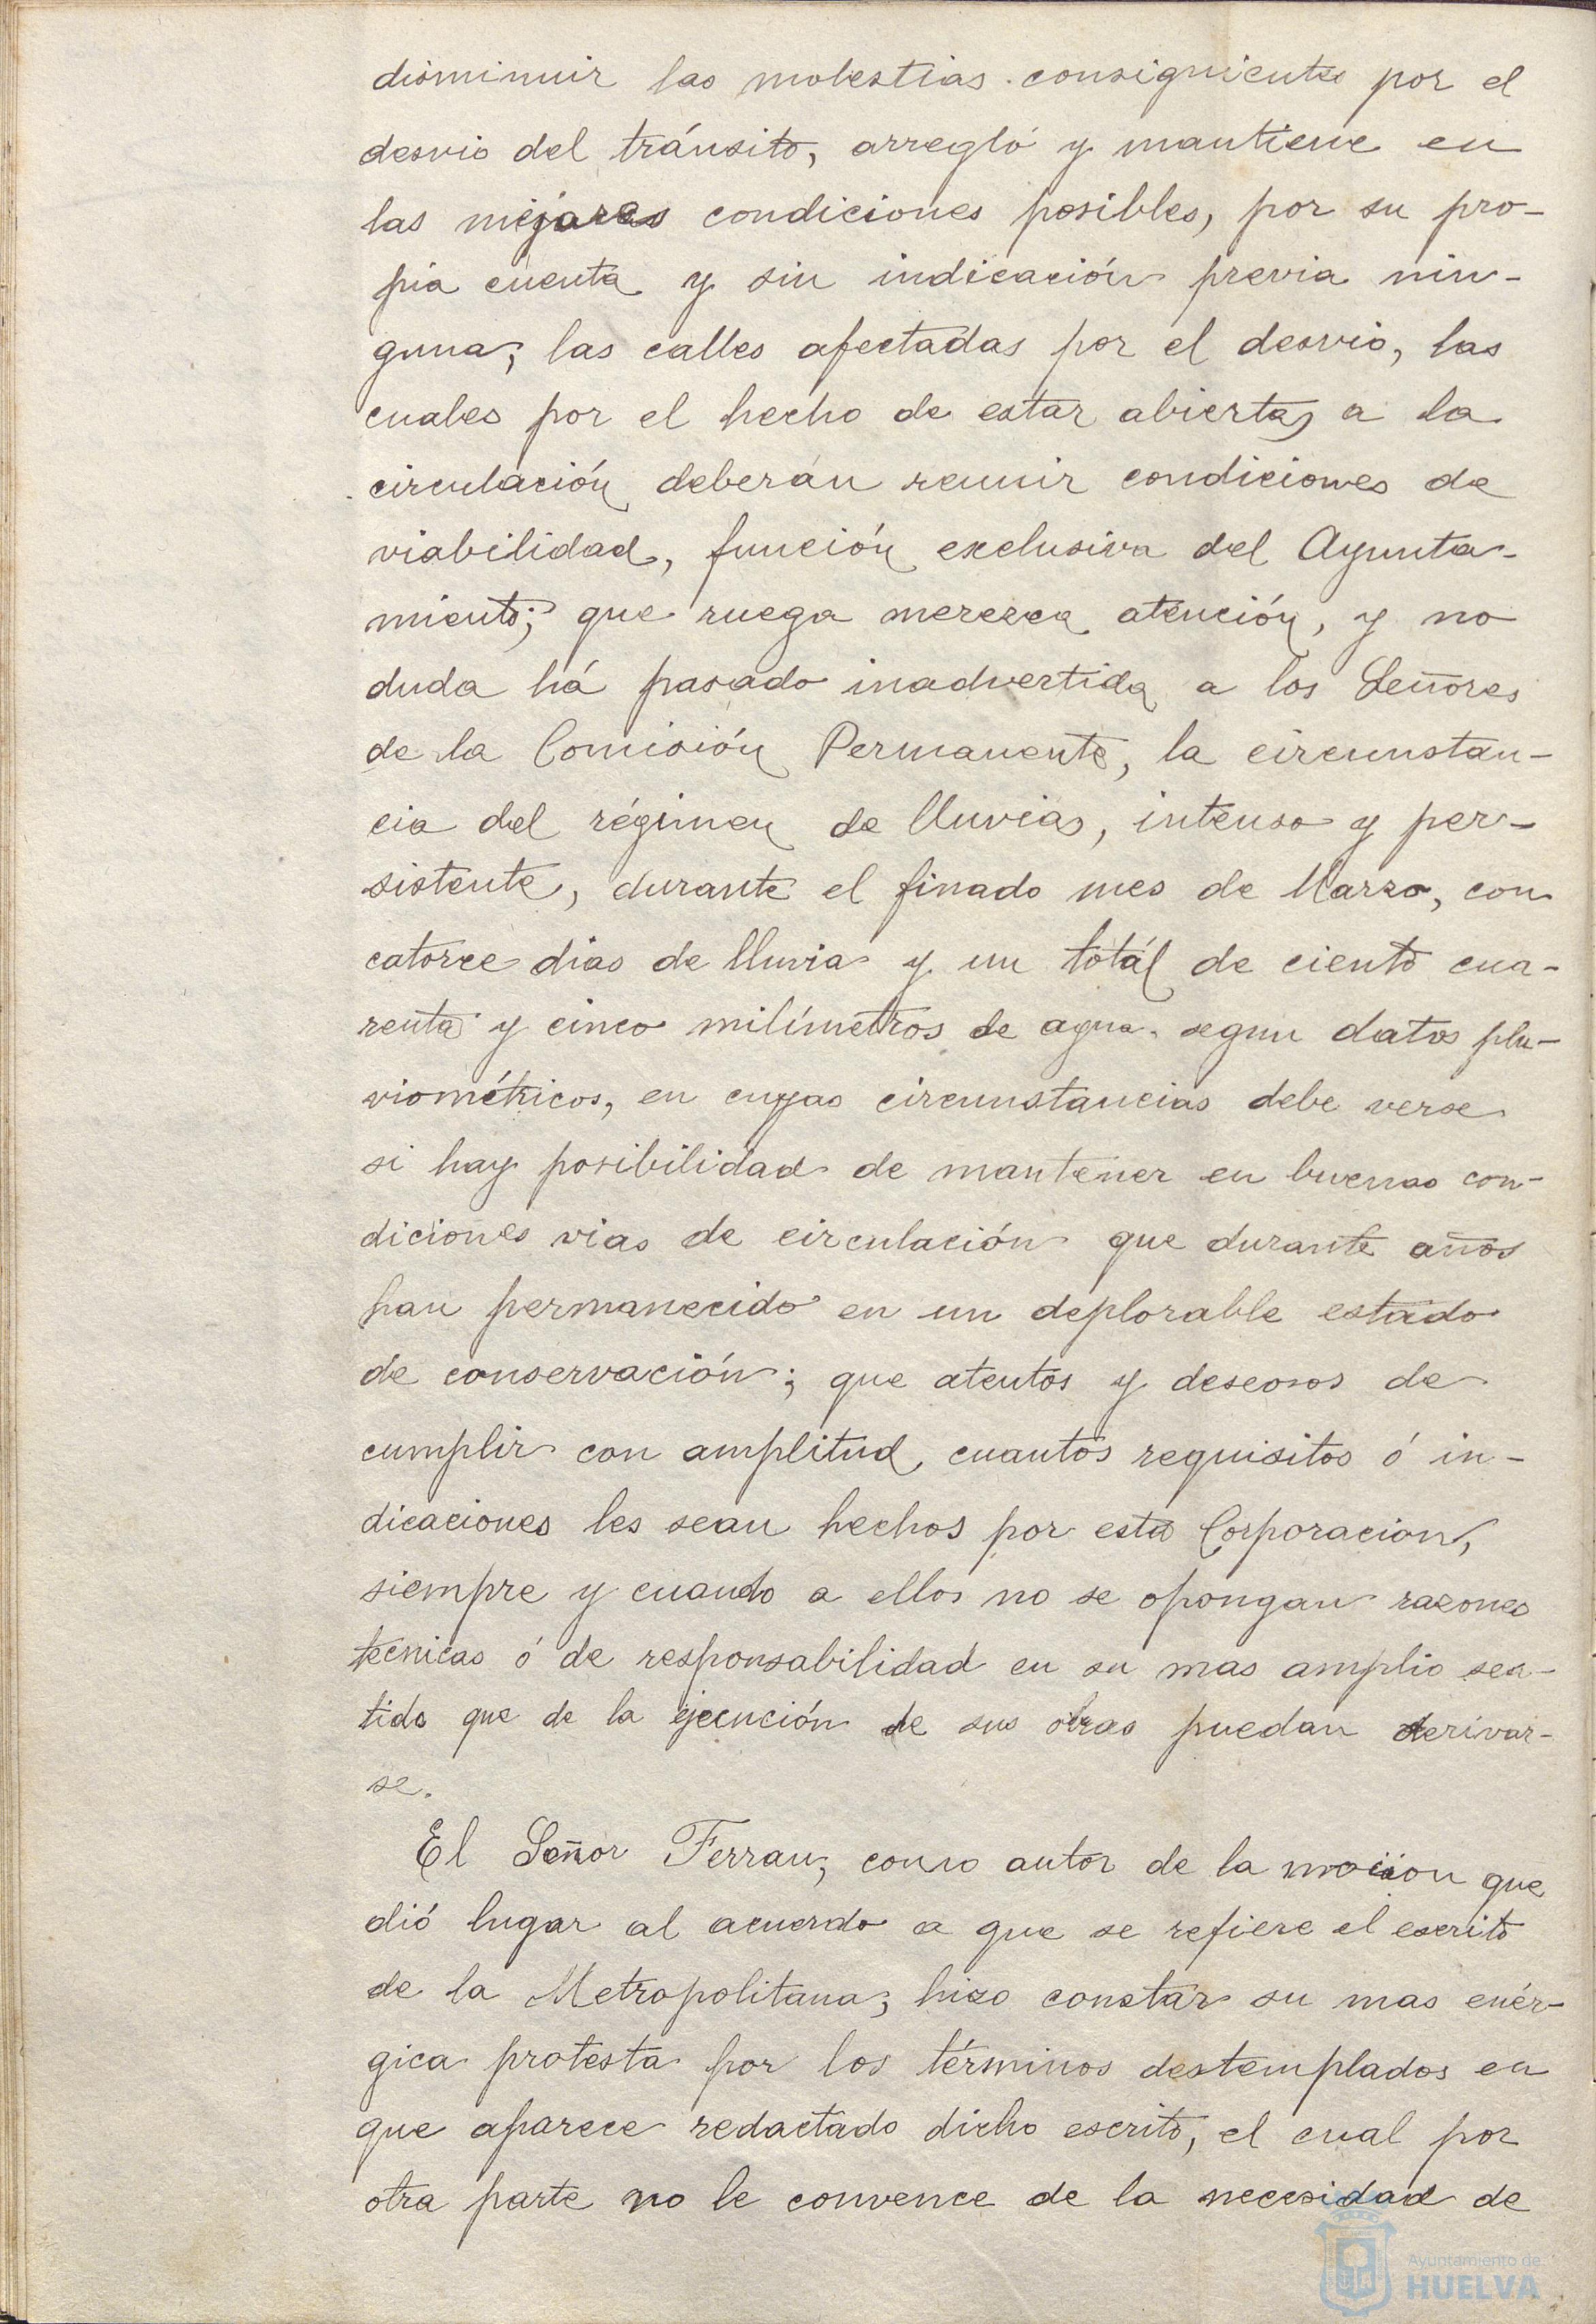 disminuir las molestias consiguientes por el
desvio del tránsito, arregló y mantiene en
las mejores condiciones posibles, por su pro-
pia cuenta y sin indicación previa nin-
guna, las calles afectadas por el desvio, las
cuales por el hecho de estar abiertas a la
circulación deberán reunir condiciones de
viabilidad, función exclusiva del Ayunta-
miento; que ruega merezca atención, y no
duda há pasado inadvertida a los Señores
de la Comisión Permanente, la circunstan-
cia del régimen de lluvias, intenso y per-
sistente, durante el finado mes de Marzo, con
catorce dias de lluvia y un totál de ciento cua-
renta y cinco milímetros de agua segun datos plu-
viométricos, en cuyas circunstancias debe verse
si hay posibilidad de mantener en buenas con-
diciones vias de circulación que durante años
han permanecido en un deplorable estado
de conservación; que atentos y deseosos de
cumplir con amplitud cuantos requisitos ó in-
dicaciones les sean hechos por esta Corporacion,
siempre y cuando a ellos no se opongan razones
tecnicas ó de responsabilidad en su mas amplio sen-
tido que de la ejecución de sus obras puedan derivar-
se.
El Señor Ferrau, como autor de la mocion que
dió lugar al acuerdo a que se refiere el escrito
de la Metropolitana, hizo constar su mas enér-
gica protesta por los términos destemplados en
que aparece redactado dicho escrito, el cual por
otra parte no le convence de la necesidad de
Ayuntamiento de
HUELVA